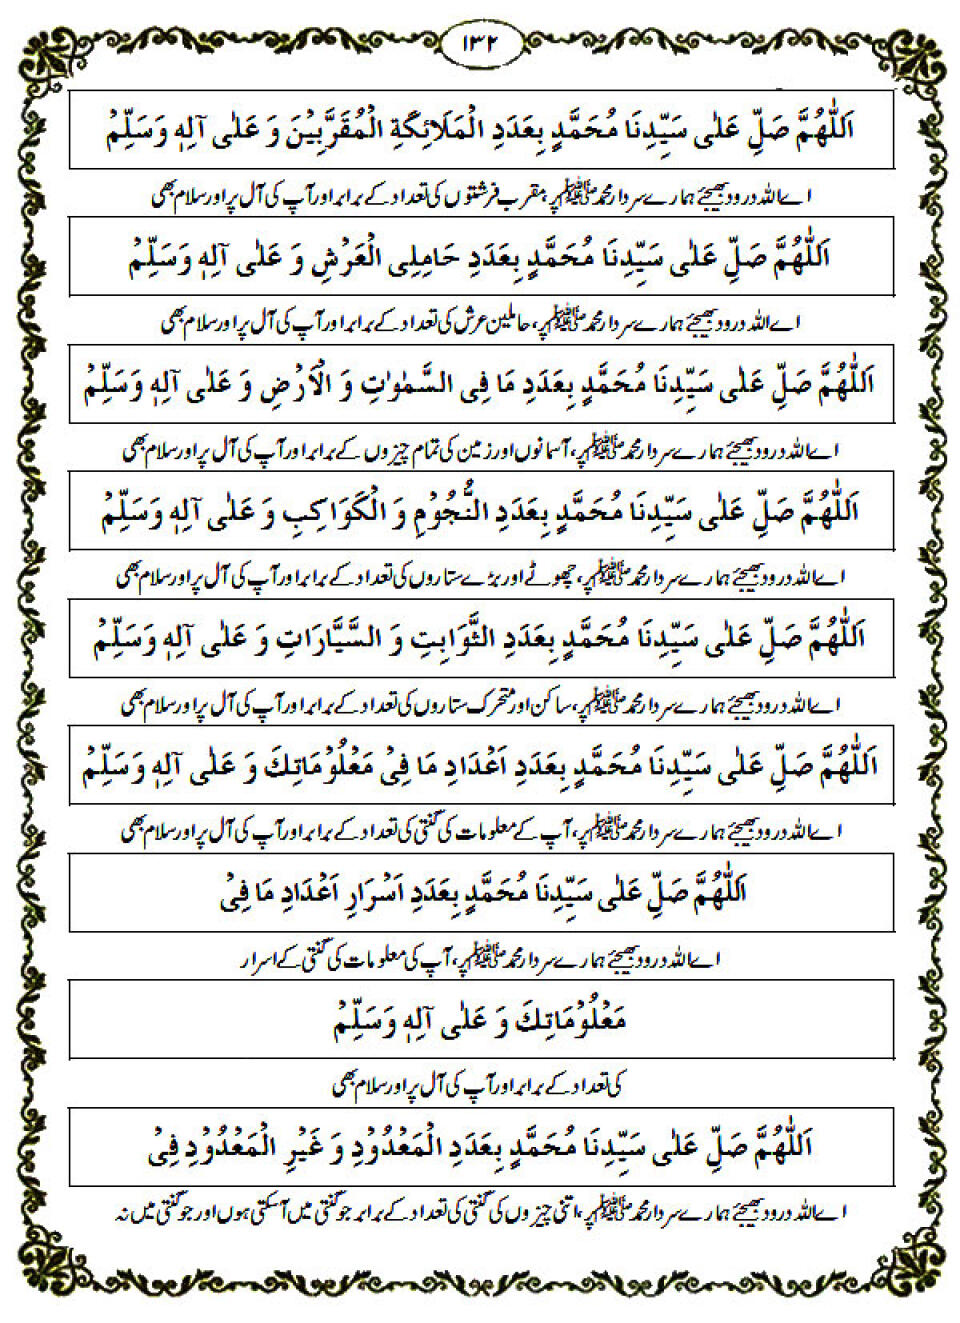 ۱۳۲
اَللّٰهُمَّ صَلِّ عَلٰى سَيِّدِنَا مُحَمَّدٍ بِعَدَدِ الْمَلَائِكَةِ الْمُقَرَّبِيْنَ وَ عَلٰى آلِهٖ وَسَلِّمْ
اے اللہ درود بھیجئے ہمارے سردار محمد ﷺ پر، مقرب فرشتوں کی تعداد کے برابر اور آپ کی آل پر اور سلام بھی
اَللّٰهُمَّ صَلِّ عَلٰى سَيِّدِنَا مُحَمَّدٍ بِعَدَدِ حَامِلِى الْعَرْشِ وَ عَلٰى آلِهٖ وَسَلِّمْ
اے اللہ درود بھیجئے ہمارے سردار محمد ﷺ پر، حاملین عرش کی تعداد کے برابر اور آپ کی آل پر اور سلام بھی
اَللّٰهُمَّ صَلِّ عَلٰى سَيِّدِنَا مُحَمَّدٍ بِعَدَدِ مَا فِى السَّمٰوٰتِ وَ الْاَرْضِ وَ عَلٰى آلِهٖ وَسَلِّمْ
اے اللہ درود بھیجئے ہمارے سردار محمد ﷺ پر، آسمانوں اور زمین کی تمام چیزوں کے برابر اور آپ کی آل پر اور سلام بھی
اَللّٰهُمَّ صَلِّ عَلٰى سَيِّدِنَا مُحَمَّدٍ بِعَدَدِ النُّجُوْمِ وَ الْكَوَاكِبِ وَ عَلٰى آلِهٖ وَسَلِّمْ
اے اللہ درود بھیجئے ہمارے سردار محمد ﷺ پر، چھوٹے اور بڑے ستاروں کی تعداد کے برابر اور آپ کی آل پر اور سلام بھی
اَللّٰهُمَّ صَلِّ عَلٰى سَيِّدِنَا مُحَمَّدٍ بِعَدَدِ الثَّوَابِتِ وَ السَّيَّارَاتِ وَ عَلٰى آلِهٖ وَسَلِّمْ
اے اللہ درود بھیجئے ہمارے سردار محمد ﷺ پر، ساکن اور متحرک ستاروں کی تعداد کے برابر اور آپ کی آل پر اور سلام بھی
اَللّٰهُمَّ صَلِّ عَلٰى سَيِّدِنَا مُحَمَّدٍ بِعَدَدِ اَعْدَادِ مَا فِىْ مَعْلُوْمَاتِكَ وَ عَلٰى آلِهٖ وَسَلِّمْ
اے اللہ درود بھیجئے ہمارے سردار محمد ﷺ پر، آپ کے معلومات کی گنتی کی تعداد کے برابر اور آپ کی آل پر اور سلام بھی
اَللّٰهُمَّ صَلِّ عَلٰى سَيِّدِنَا مُحَمَّدٍ بِعَدَدِ اَسْرَارِ اَعْدَادِ مَا فِىْ
اے اللہ درود بھیجئے ہمارے سردار محمد ﷺ پر، آپ کی معلومات کی گنتی کے اسرار
مَعْلُوْمَاتِكَ وَ عَلٰى آلِهٖ وَسَلِّمْ
کی تعداد کے برابر اور آپ کی آل پر اور سلام بھی
اَللّٰهُمَّ صَلِّ عَلٰى سَيِّدِنَا مُحَمَّدٍ بِعَدَدِ الْمَعْدُوْدِ وَ غَيْرِ الْمَعْدُوْدِ فِىْ
اے اللہ درود بھیجئے ہمارے سردار محمد ﷺ پر، اتنی چیزوں کی گنتی کی تعداد کے برابر جو گنتی میں آسکتی ہوں اور جو گنتی میں نہ